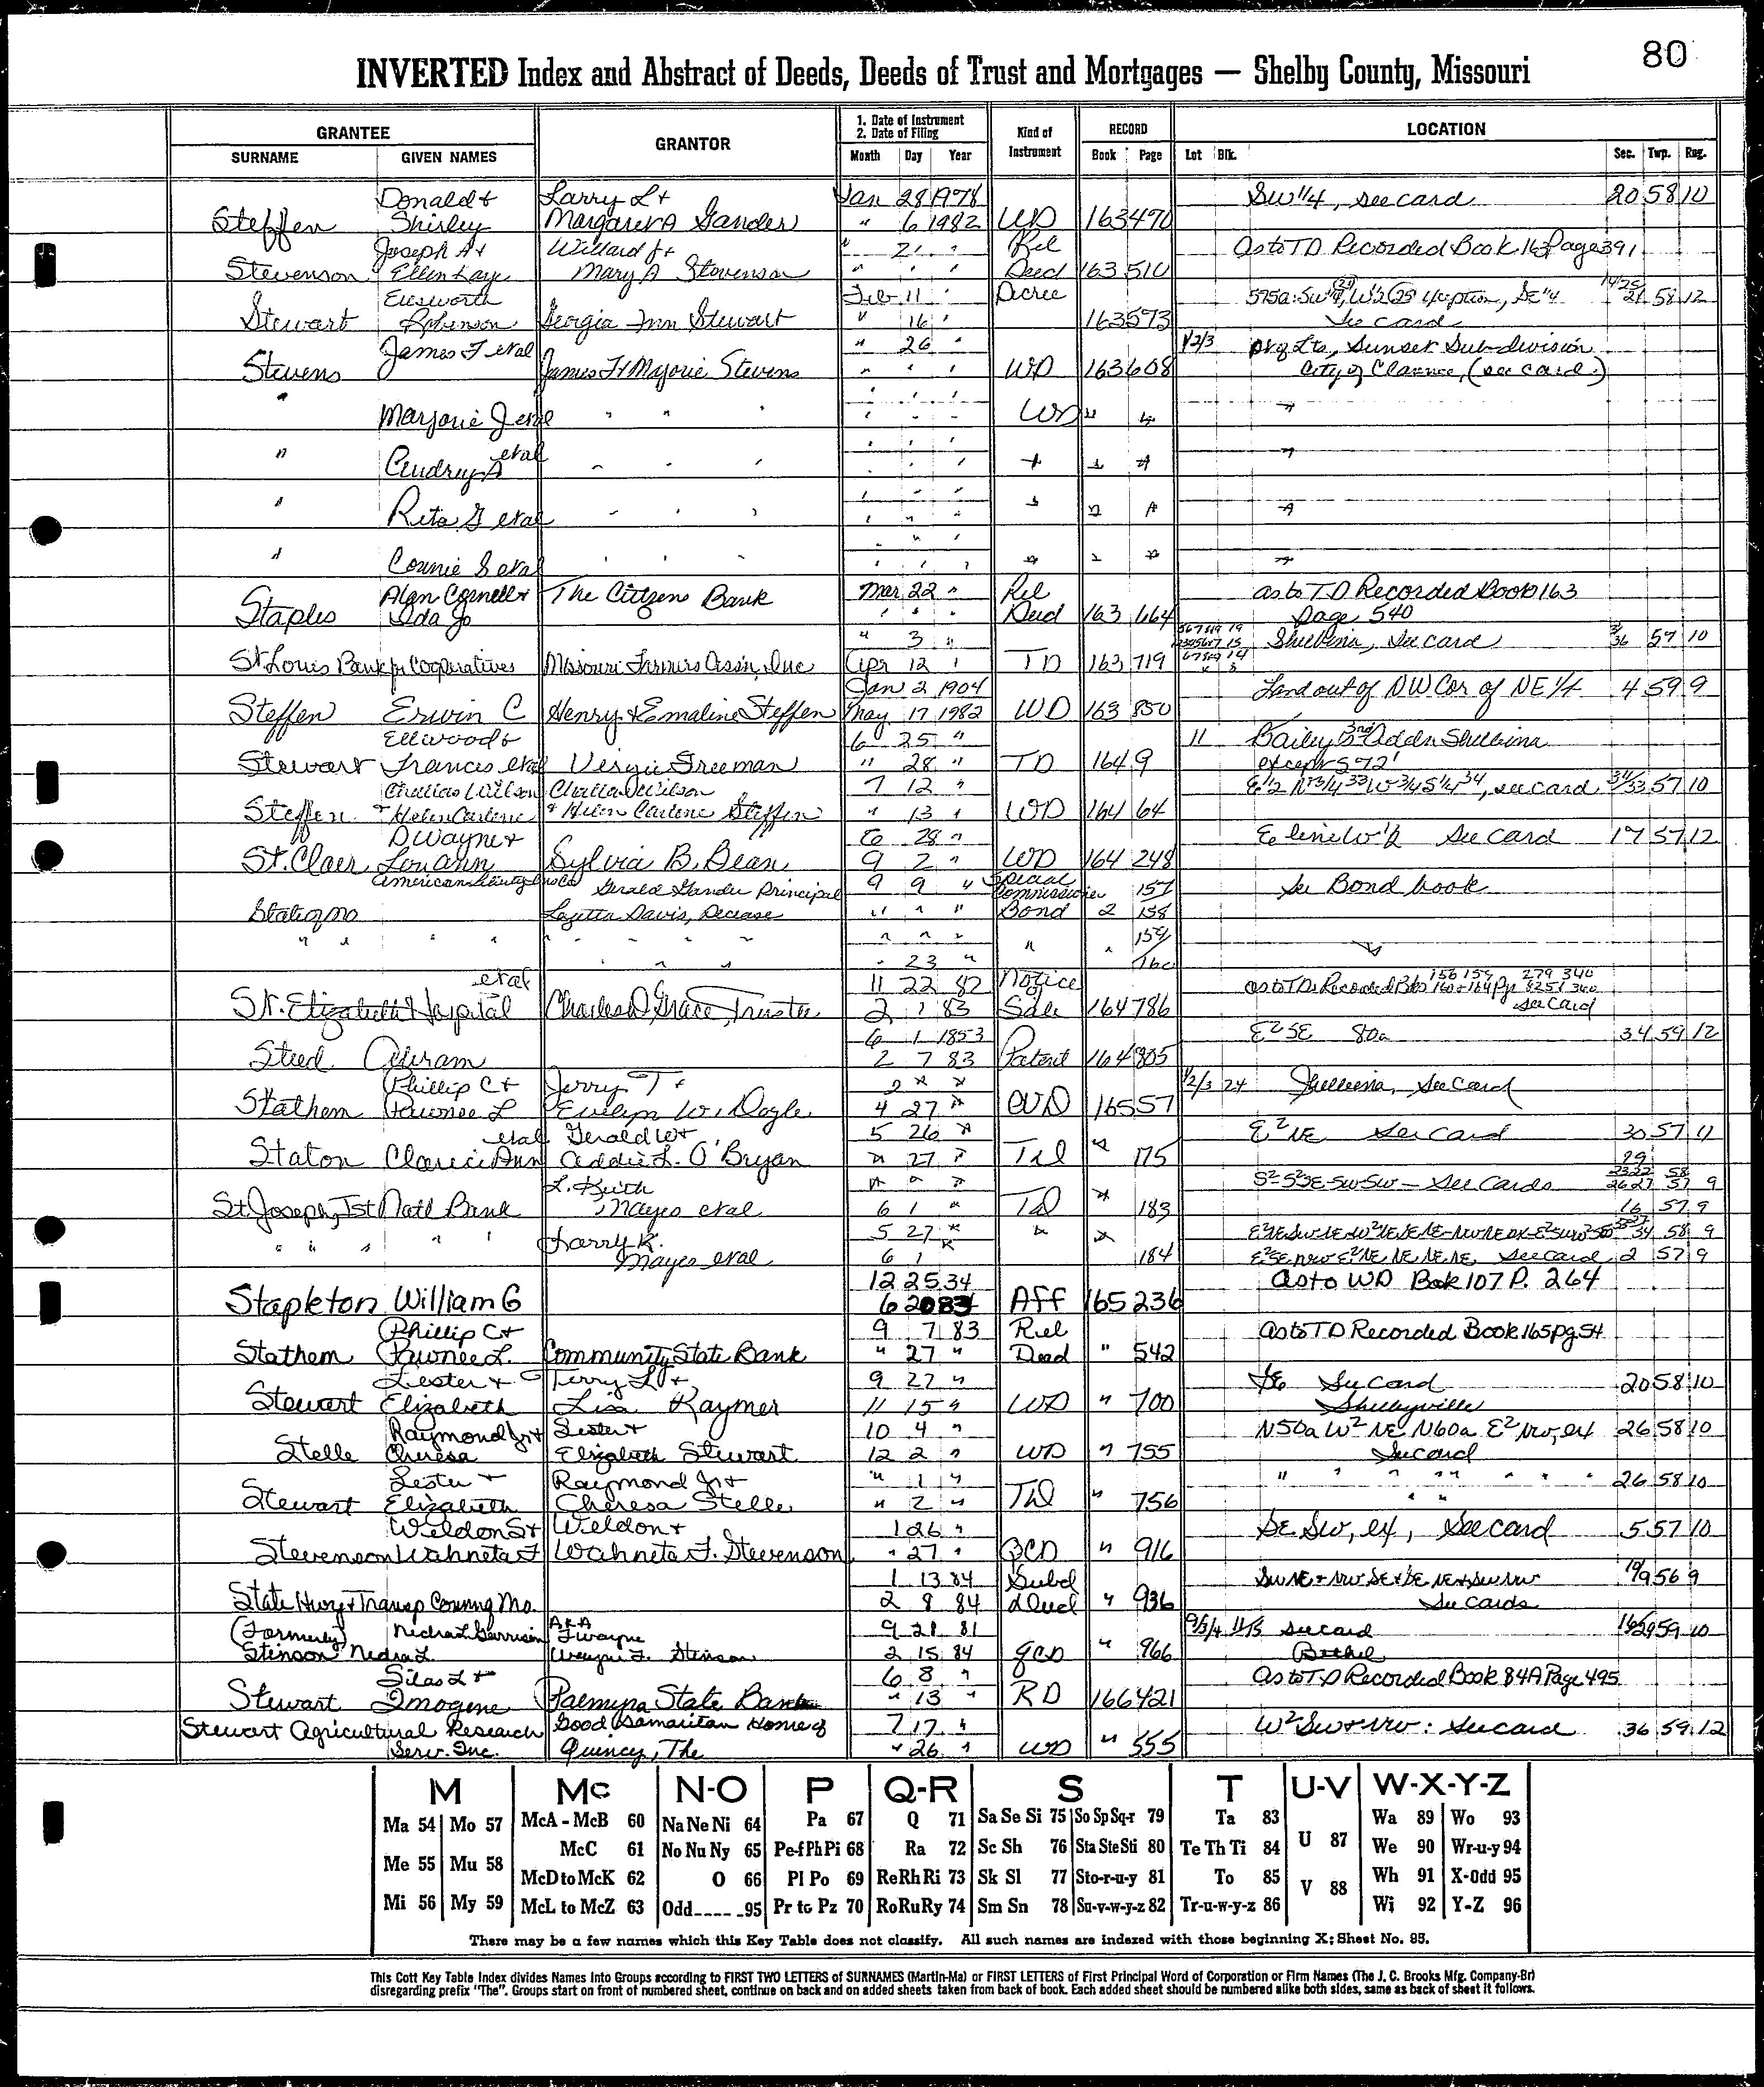 80
INVERTED Index and Abstract of Deeds, Deeds of Trust and Mortgages — Shelby County, Missouri
GRANTEE GRANTOR 1. Date of Instrument 2. Date of Filing Kind of Instrument RECORD LOCATION
SURNAME GIVEN NAMES Month Day Year Book Page Lot Blk. Sec. Twp. Rng.
Donald & Larry L & Jan 28 1978 SW 1/4, see card 20 58 10
Steffen Shirley Margaret A Gander " 6 1982 WD 163 470
Joseph A & Willard J & " 21 " Rel As to TD Recorded Book 163 Page 391
Stevenson Ellen Kaye Mary A Stevenson " " " Deed 163 510
Ellsworth Feb 11 " Decree
Stewart Robinson Georgia Inn Stewart " 16 " 163 573 See card
James F etal " 26 " 1/2/3 Sunset Subdivision
Stevens James F & Marjorie Stevens " " " WD 163 608 City of Clarence, (see card)
" Marjorie J etal " " " WD " "
" Audrey A etal " " " " " "
" Rita G etal " " " " " "
" Connie S etal " " " " " "
Alan Cornell & The Citizens Bank Mar 22 " Rel as to TD Recorded Book 163
Staples Ida Jo " " " Deed 163 664 Page 540
" 3 " Shelbina, see card 36 57 10
St. Louis Bank for Cooperatives Missouri Farmers Assn, Inc Apr 12 " TD 163 719
Jan 2 1904 Land out of NW Cor of NE 1/4 4 59 9
Steffen Erwin C Henry & Emaline Steffen May 17 1982 WD 163 850
Ellwood & 6 25 " 11 Bailey's 3rd Addn Shelbina
Stewart Francis etal Vergie Freeman " 28 " TD 164 9 except S 72'
Charles Wilson 7 12 " see card 34/33 57 10
Steffen & Helen Carlene & Helen Carlene Steffen " 13 " WD 164 64
DWayne & 6 28 " E line W 1/2 See card 17 57 12
St. Clair Lou Ann Sylvia B. Bean 9 2 " WD 164 248
Gerald Gander Principal 9 9 " Special Commissioner 157 See Bond book
State of Mo Lozetta Davis, Decease " " " Bond 2 158
" " " " " " " " " " 159
" 23 " 160
etal 11 22 82 Notice of
St. Elizabeth Hospital Charles D. Grace, Trustee 2 1 83 Sale 164 786 see Card
6 1 1853 E2 SE 80a 34 59 12
Steed Abram 2 7 83 Patent 164 805
Phillip C & Jerry T & 2 " " 1/2/3 24 Shelbina, See card
Stathem Pawnee L Evelyn W. Dogle 4 27 " WD 165 57
etal Gerald W & 5 26 " E2 NE See Card 30 57 11
Staton Clarice Ann Addie L. O'Bryan " 27 " TD " 175 29
L. Keith " " " S2-S2SE-SW-SW - See Cards
St. Joseph, 1st Natl Bank Mayes etal 6 1 " TD " 183 16 57 9
" " " " " Harry K. 5 27 " " " 34 58 9
Mayes etal 6 1 184 See Card 2 57 9
12 25 34 As to WD Book 107 P. 264
Stapleton William G 6 20 83 Aff 165 236
Phillip C & 9 7 83 Rel As to TD Recorded Book 165 pg 54
Stathem Pawnee L. Community State Bank " 27 " Deed " 542
Lester & Terry L & 9 27 " See Card 20 58 10
Stewart Elizabeth Lisa Raymer 11 15 " WD " 700 Shelbyville
Raymond Jr & Lester & 10 4 " N50a W2 NE N60a E2 NW, ex 26 58 10
Stelle Cheresa Elizabeth Stewart 12 2 " WD " 755 See card
Lester & Raymond Jr & " 1 " " " " " " " " 26 58 10
Stewart Elizabeth Cheresa Stelle " 2 " TD " 756 " "
Weldon S & Weldon & 1 26 " SE SW, ex, See card 5 57 10
Stevenson Wahneta F Wahneta F. Stevenson " 27 " QCD " 916
1 13 84 Subd
State Hwy & Transp Comm Mo. 2 8 84 Deed " 936 See Cards
(Formerly) Nedra L Garrison AKA F Wayne 9 21 81 See card
Stinson Nedra L. Wayne F. Stinson 2 15 84 QCD " 966 Bethel
Silas L & 6 8 " As to TD Recorded Book 84A Page 495
Stewart Imogene Palmyra State Bank " 13 " RD 166 421
Stewart Agricultural Research Good Samaritan Home of 7 17 " W2 SW & NW: See card 36 59 12
Serv. Inc. Quincy, The " 26 " WD " 555
M Mc N-O P Q-R S T U-V W-X-Y-Z
Ma 54 Mo 57 McA - McB 60 Na Ne Ni 64 Pa 67 Q 71 Sa Se Si 75 So Sp Sq-r 79 Ta 83 U 87 Wa 89 Wo 93
Me 55 Mu 58 McC 61 No Nu Ny 65 Pe-f Ph Pi 68 Ra 72 Sc Sh 76 Sta Ste Sti 80 Te Th Ti 84 We 90 Wr-u-y 94
McD to McK 62 O 66 Pl Po 69 Re Rh Ri 73 Sk Sl 77 Sto-r-u-y 81 To 85 V 88 Wh 91 X-Odd 95
Mi 56 My 59 McL to McZ 63 Odd---- 95 Pr to Pz 70 Ro Ru Ry 74 Sm Sn 78 Su-v-w-y-z 82 Tr-u-w-y-z 86 Wi 92 Y-Z 96
There may be a few names which this Key Table does not classify. All such names are indexed with those beginning X; Sheet No. 95.
This Cott Key Table Index divides Names into Groups according to FIRST TWO LETTERS of SURNAMES (Martin-Ma) or FIRST LETTERS of First Principal Word of Corporation or Firm Names (The J. C. Brooks Mfg. Company-Br)
disregarding prefix "The". Groups start on front of numbered sheet, continue on back and on added sheets taken from back of book. Each added sheet should be numbered alike both sides, same as back of sheet it follows.